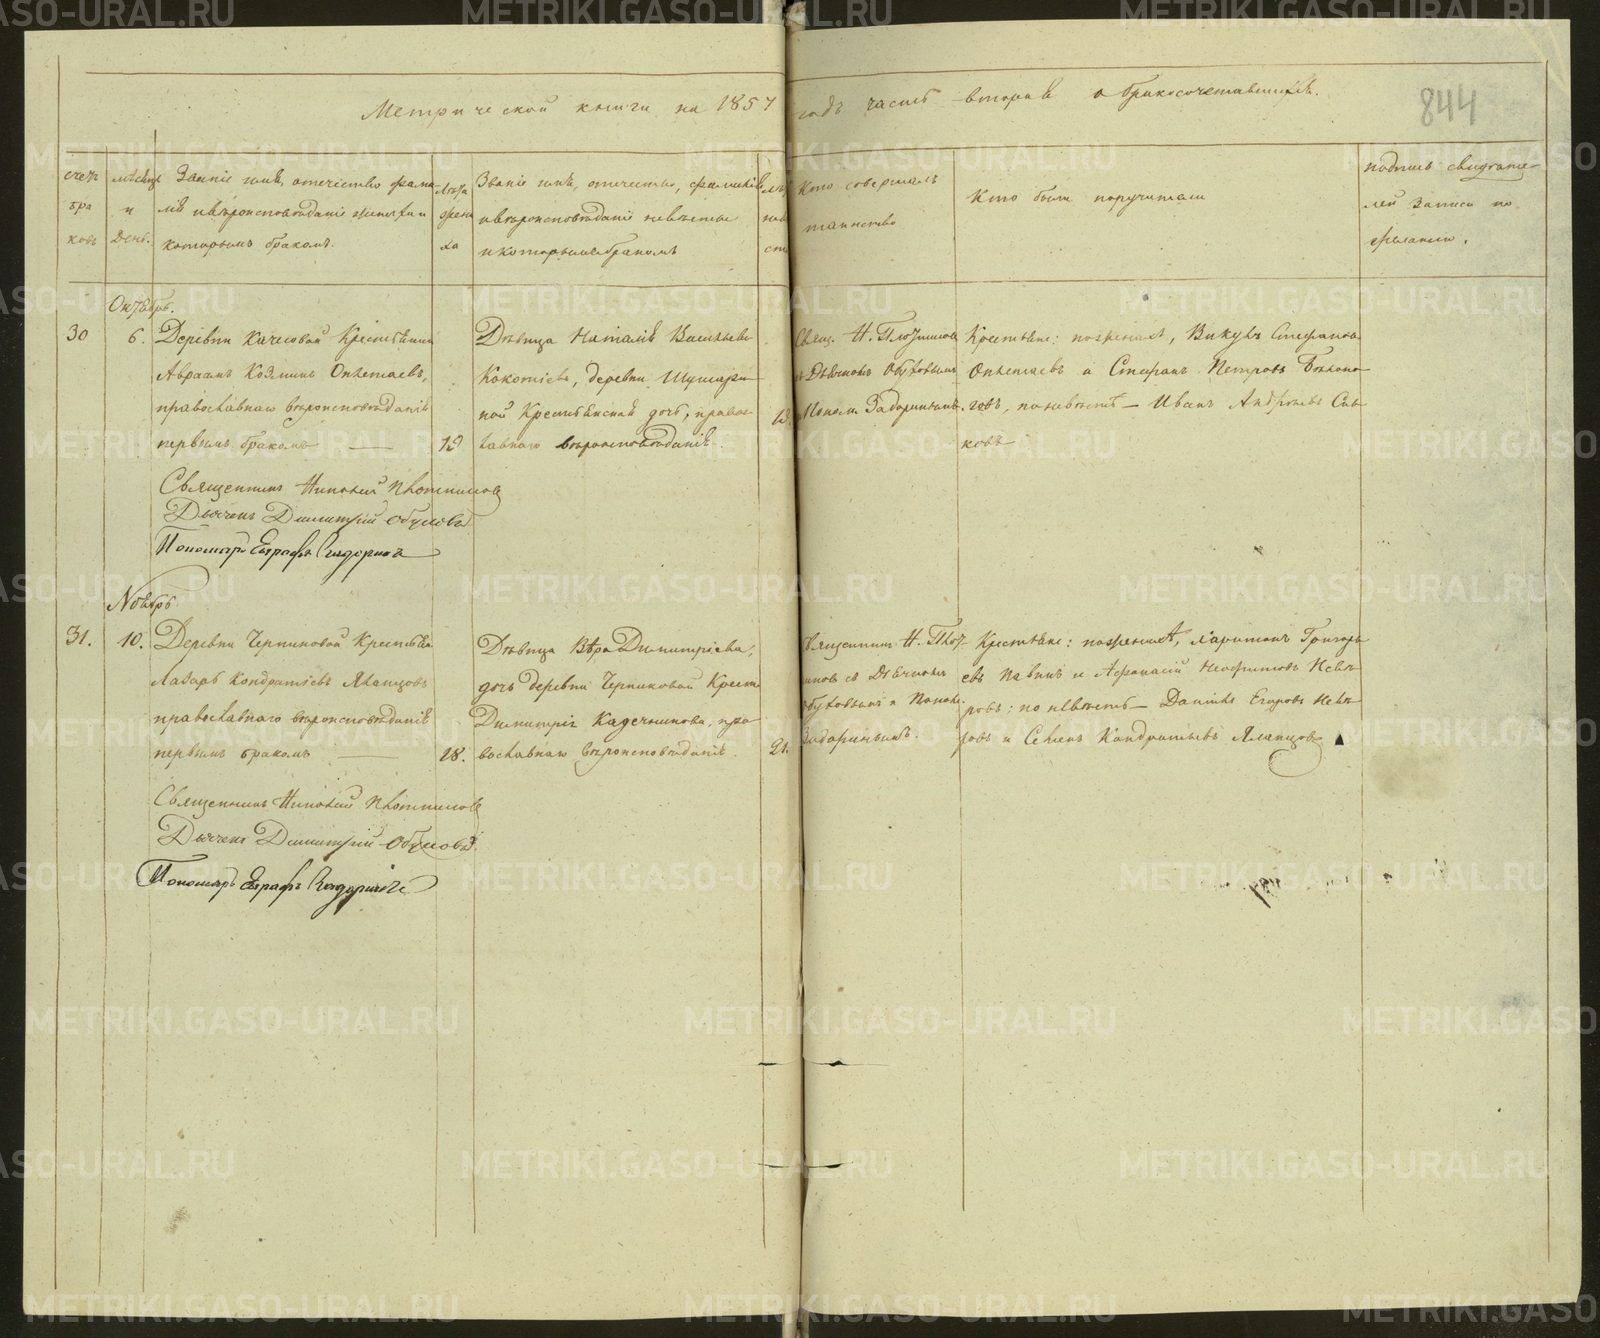 Метрической книги на 1857 годъ часть вторая о бракосочетавшихся.
844
счетъ браковъ
мѣсяцъ и день.
Званіе имя, отечество фамилія и вѣроисповѣданіе жениха и которымъ бракомъ.
лѣта жениха
Званіе имя, отечество, фамилія и вѣроисповѣданіе невѣсты и которымъ бракомъ
Кто совершалъ таинство
Кто были поручители
подпись свидѣтелей записи по желанію.
Октябрь.
30
6.
Деревни Качесовой Крестьянинъ
Авраамъ Козминъ Опкетаевъ,
православнаго вѣроисповѣданія
первымъ бракомъ
19
Дѣвица Наталія Васильева
деревни Шушари-
ной Крестьянская дочь, правос-
лавнаго вѣроисповѣданія.
Свящ. Н. Плотниковъ
Дьячкомъ Обуховымъ
Поном. Задоринымъ.
Крестьяне: по женихѣ, Викулъ Стефановъ
Опкетаевъ и Стефанъ Петровъ
по невѣстѣ — Иванъ Андреевъ
ковъ
Священникъ Николай Плотниковъ
Дьячекъ Димитрій Обуховъ
Пономарь Евграфъ Задоринъ
Ноябрь
31.
10.
Деревни Черниковой Крестьянинъ
Лазарь Кондратьевъ Яланцовъ
православнаго вѣроисповѣданія
первымъ бракомъ
18.
Дѣвица Вѣра Димитріева,
дочь деревни Черниковой Крест.
Димитрія Кадочникова, пра-
вославнаго вѣроисповѣданія.
21.
Священникъ Н. Плот-
никовъ съ Дьячкомъ
Обуховымъ и Поном.
Задоринымъ.
Крестьяне: по женихѣ, Харитонъ Григорь-
евъ Павинъ и Афанасій Неофитовъ Невѣ-
ровъ; по невѣстѣ — Даніилъ Егоровъ Невѣ-
ровъ и Семенъ Кондратьевъ Яланцовъ
Священникъ Николай Плотниковъ
Дьячекъ Димитрій Обуховъ
Пономарь Евграфъ Задоринъ
METRIKI.GASO-URAL.RU